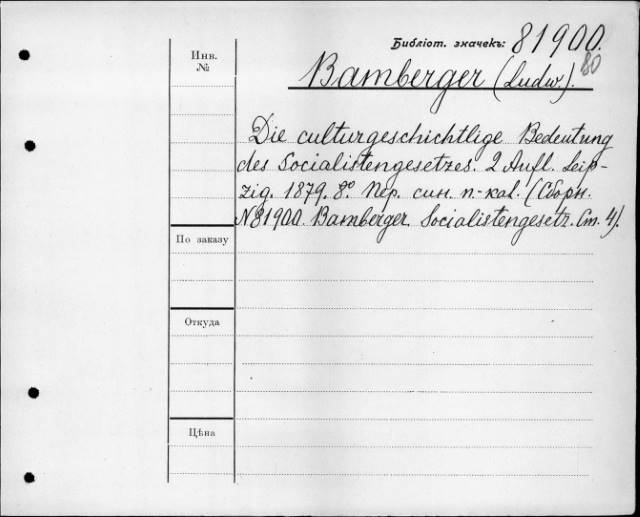 Библіот. значекъ: 81900.
80
Инв.
№
Bamberger (Ludw.).
Die culturgeschichtlige Bedeutung
des Socialistengesetzes. 2 Aufl. Leip-
zig. 1879. 8º. Пер. син. п.-кал. (Сборн.
№81900. Bamberger. Socialistengesetz. Ст. 4).
По заказу
Откуда
Цѣна